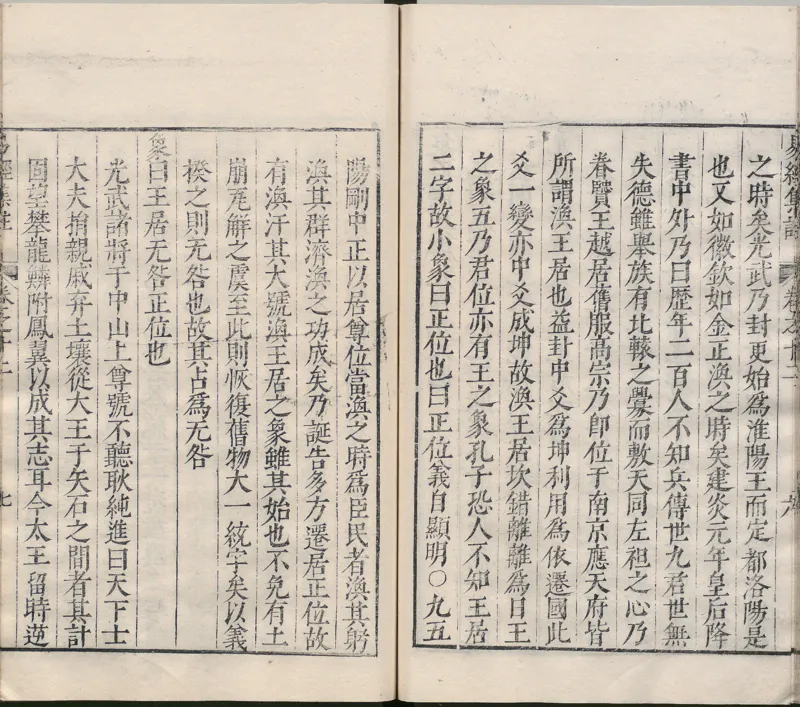 之時矣光武乃封更始爲淮陽王而定都洛陽是
也又如徽欽如金正渙之時矣建炎元年皇后降
書中外乃曰歷年二百人不知兵傳世九君世無
失德雖舉族有北轅之釁而敷天同左袒之心乃
眷賢王越居舊服高宗乃即位于南京應天府皆
所謂渙王居也益卦中爻爲坤利用爲依遷國此
爻一變亦中爻成坤故渙王居坎錯離離爲日王
之象五乃君位亦有王之象孔子恐人不知王居
二字故小象曰正位也曰正位義自顯明○九五
陽剛中正以居尊位當渙之時爲臣民者渙其躬
渙其群濟渙之功成矣乃誕告多方遷居正位故
有渙汗其大號渙王居之象雖其始也不免有土
崩瓦解之虞至此則恢復舊物大一統宇矣以義
揆之則无咎也故其占爲无咎
象曰王居无咎正位也
光武諸將于中山上尊號不聽耿純進曰天下士
大夫捐親戚弃土壤從大王于矢石之間者其計
固望攀龍鱗附鳳翼以成其志耳今大王留時逆